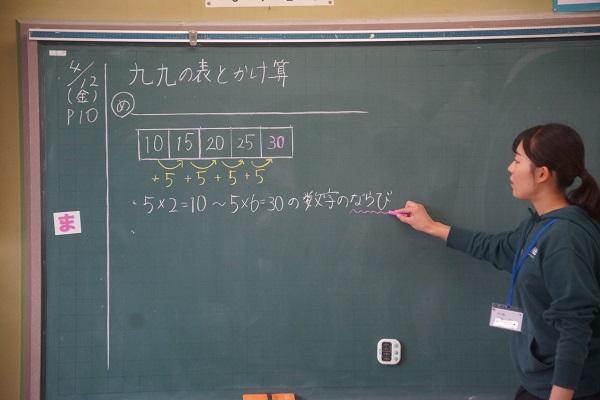 4/12
(金)
P10
九九の表とかけ算
め
10 15 20 25 30
+5 +5 +5 +5
・5×2=10 ～ 5×6=30 の数字のならび
・
ま